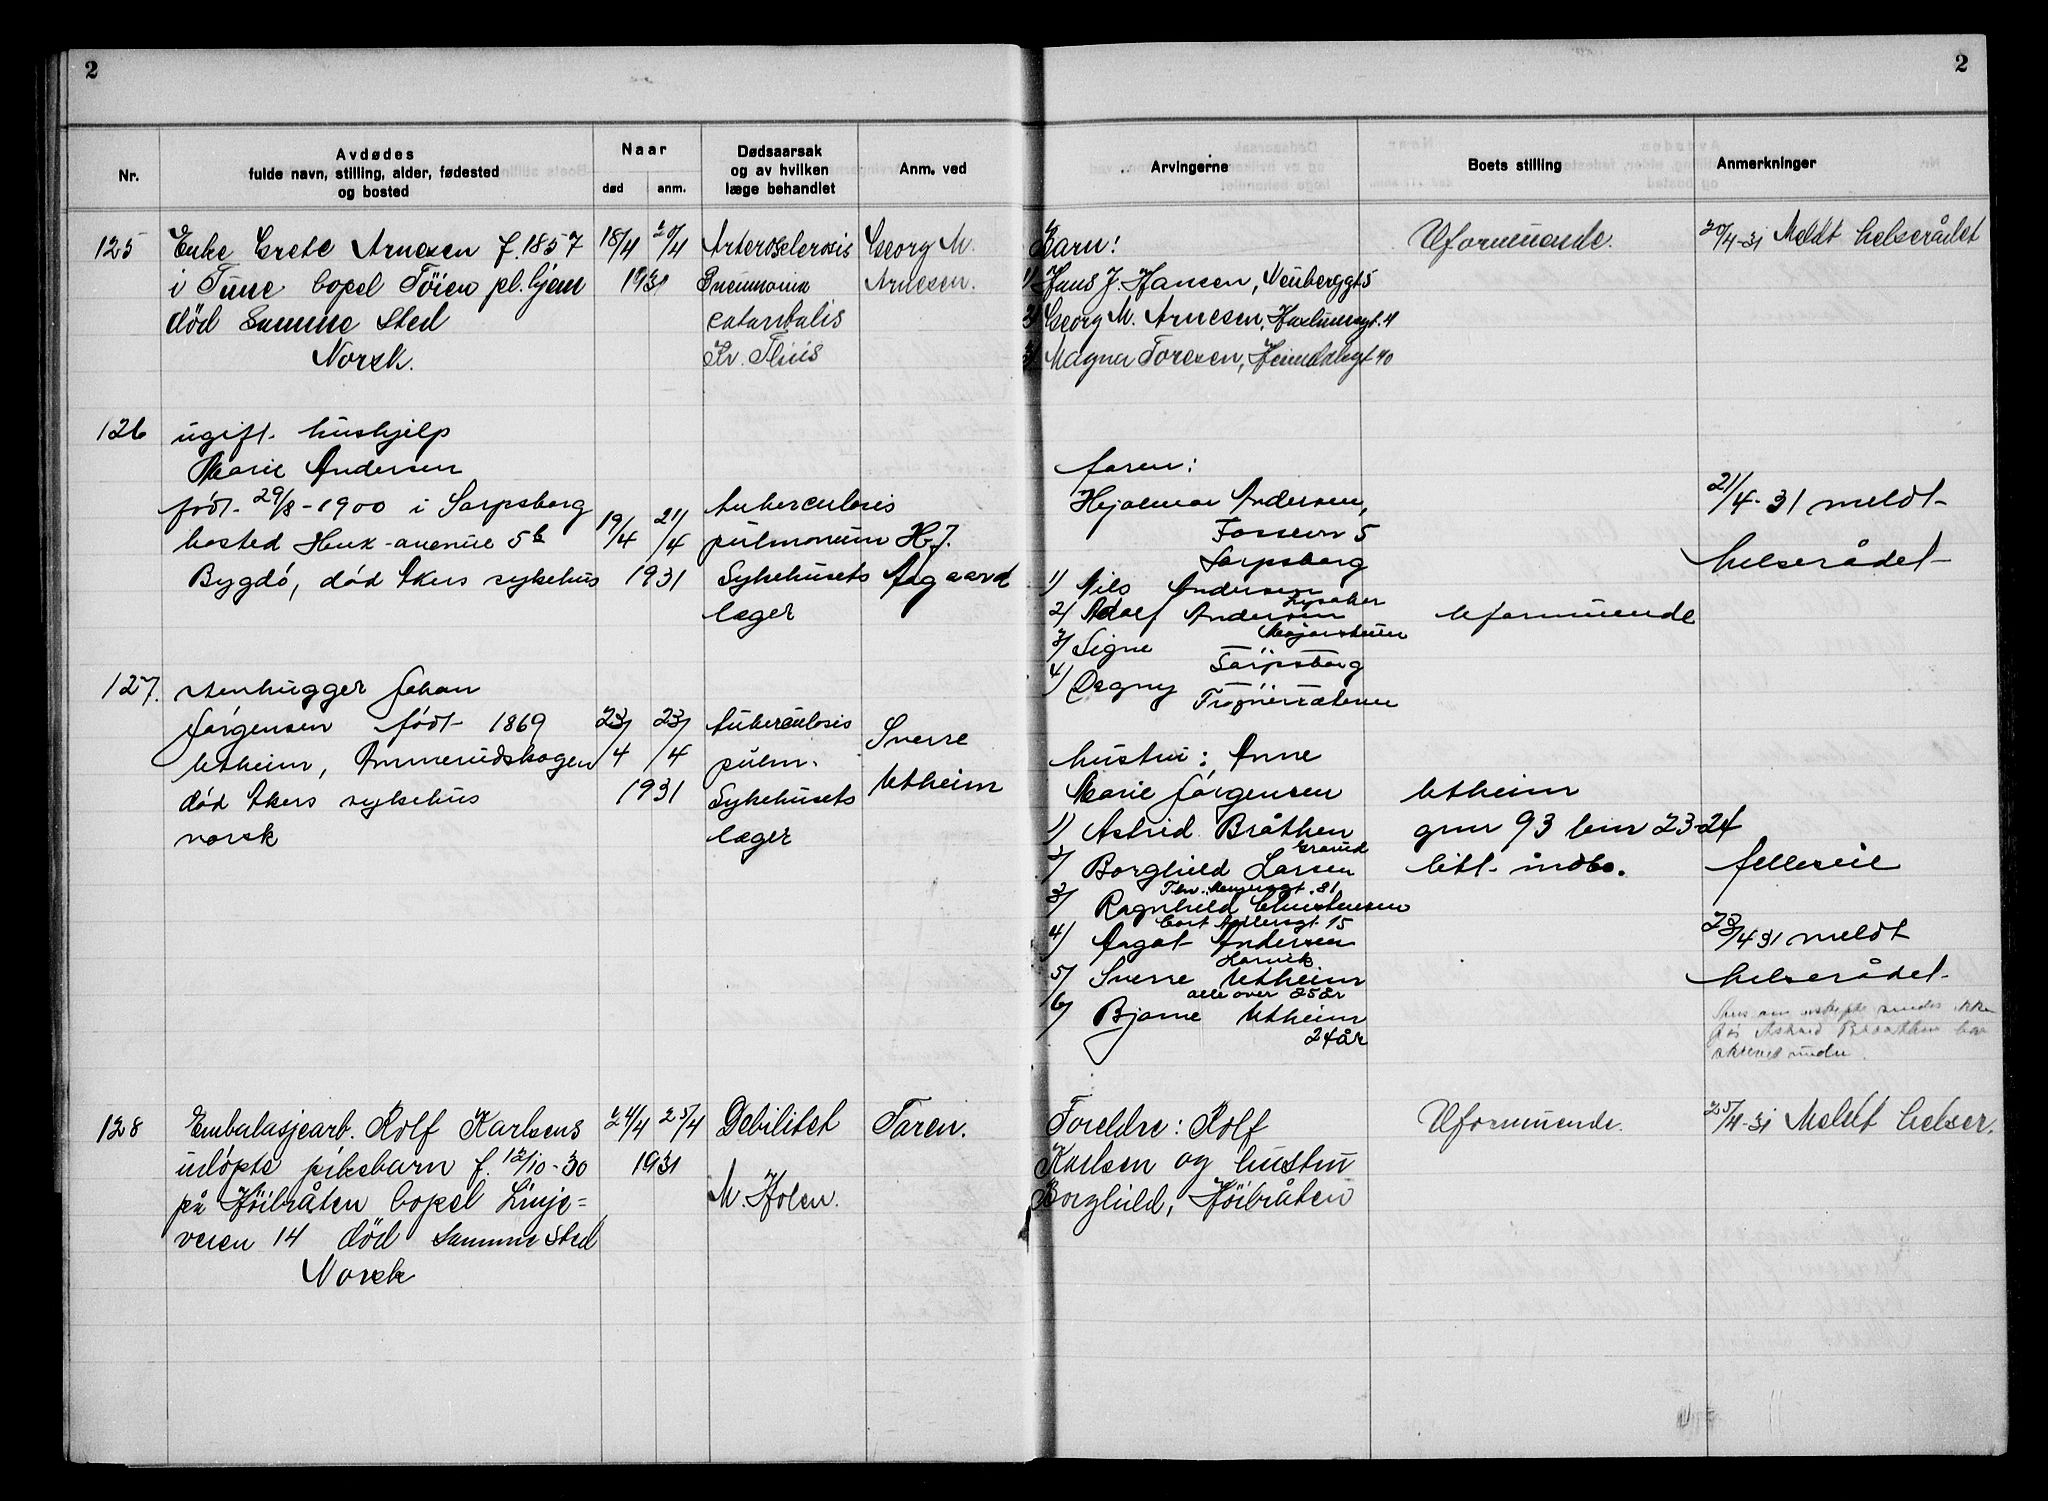 2
2
Nr.
Avdødes
fulde navn, stilling, alder, fødested
og bosted
Naar
død
anm.
Dødsaarsak
og av hvilken
læge behandlet
Anm. ved
Arvingerne
Boets stilling
Anmerkninger
125
Enke Grete Arnesen f. 1857
i Tune bopel Töien pl.hjem
död samme sted
Norsk.
18/4 20/4
1931
Arterosclerosis
Pneumonia
catarrhalis
Georg M.
Arnesen.
Barn:
1) Hans J. Hansen, Neuberggt 5
2) Georg M. Arnesen,
3) Magna Toresen, Heimdalsgt 40
Uformuende.
20/4-31 Meldt helserådet
126
ugift hushjelp
Marie Andersen
født 29/8-1900 i Sarpsborg
bosted Huk-avenue 5b
Bygdø, død Akers sykehus
19/4 21/4
1931
Tuberculosis
pulmonum
Sykehusets
læger
H.J.
Aagaard
faren:
Hjalmar Andersen,
Fossevn 5
Sarpsborg
1) Nils Andersen
Lysaker
2) Adolf Andersen
Majorstuen
3) Signe
Sarpsborg
4) Dagny
Frognersæteren
Uformuende
21/4-31 meldt
helserådet
127.
stenhugger Johan
Jørgensen født 1869
Utheim, Ammerudskogen
død Akers sykehus
norsk
23/4 23/4
1931
Tuberculosis
pulm.
Sykehusets
læger
Sverre
Utheim
hustru: Anne
Marie Jørgensen
1) Astrid Bråthen
Grorud
2) Borghild Larsen
81
3) Ragnhild Christensen
Cort Adlersgt 15
4) Aagot Andersen
Larvik
5) Sverre Utheim
alle over 25 år
6) Bjarne Utheim
24 år
Utheim
gnr 93 bnr 23-24
litt indbo.
felleseie
23/4 31 meldt
helserådet
128
Embalasjearb. Rolf Karlsens
udöpte pikebarn f. 12/10-30
på Höibråten bopel Linje-
veien 14 död samme sted
Norsk
24/4 25/4
1931
Debilitet
M. Holen.
Faren.
Foreldre: Rolf
Karlsen og hustru
Borghild, Höibråten
Uformuende.
25/4-31 Meldt helser.